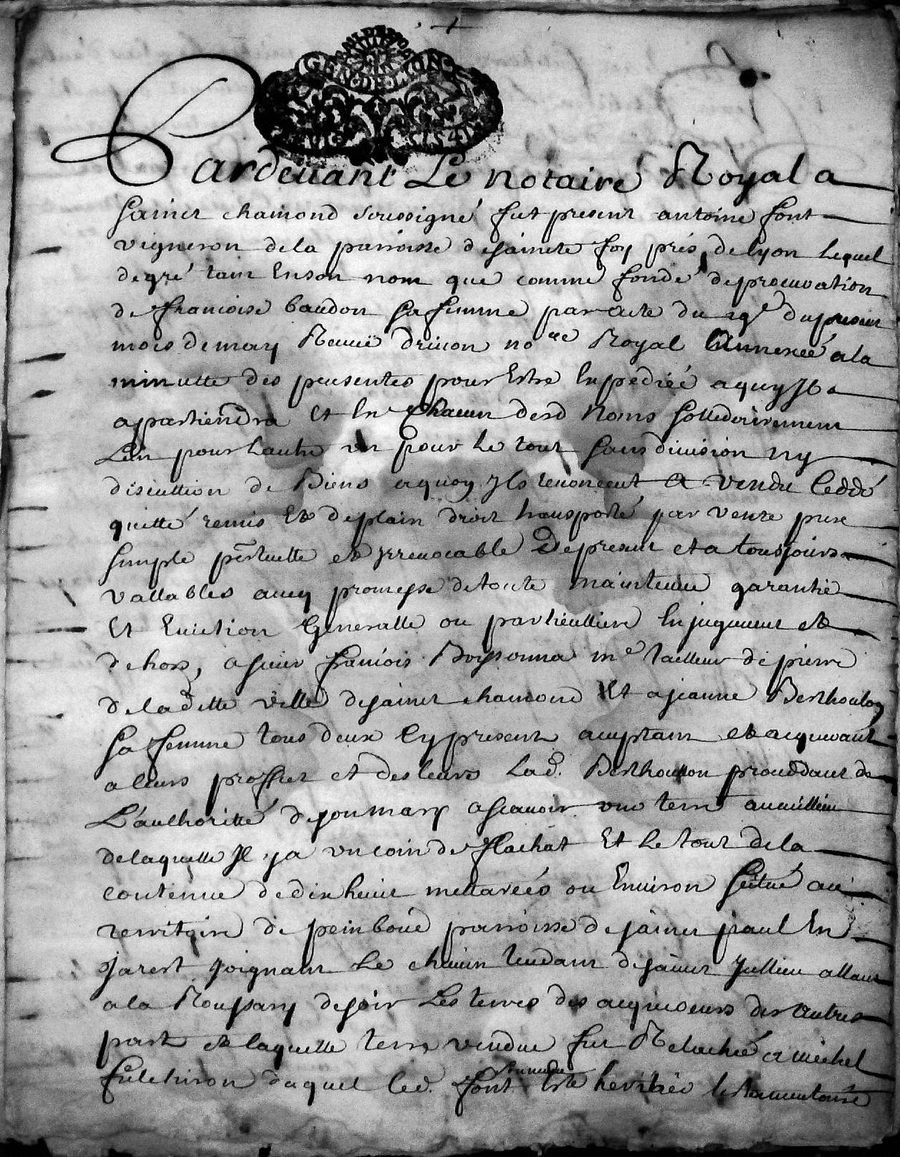 GEN.DE.LYON
Pardeuant Le notaire Royal a
sainct chamond soussigné fut present antoine font
vigneron de la parroisse de saincte foy prés de lyon lequel
de gré tant en son nom que comme fondé de procuration
de francoise baudon sa femme par acte du 29e du present
mois de may Receu no.re Royal annexée a la
minutte des presentes pour Estre Expediée a quy Il
appartiendra Et En chacun desd noms sollidairement
L'un pour l'autre un pour le tout sans division ny
discution de Biens a quoy Ils renoncent A vendu Ceddé
quitté remis Et de plain droit transporté par vente pure
simple p.etuelle et irreuocable De present et a tousjours
vallables auec promesse de toute maintenue garantie
Et Euiction Generalle ou particulliere En jugement et
dehors, a sieur francois Boissonna m.e tailleur de pierre
de lad.e ville de sainct chamond Et a jeanne Berthoulon
sa femme tous deux Cy present acceptant et acquerant
a leurs proffict et des leurs Lad. Berthoulon procedant de
L'authorité de son mary a scauoir une terre au millieu
de laquelle Il ya un coin de flachat Et Le tout de la
contenue de dix huict metterées ou Enuiron scitué au
territoire de peinboue parroisse de sainct paul En
jarest joignant Le chemin tendant de sainct Jullien allant
a la Roussary de soir Les terres des acquereurs des autres
part et laquelle terre vendue fut Relachée a michel
duquel led. font Este heritier testamentaire